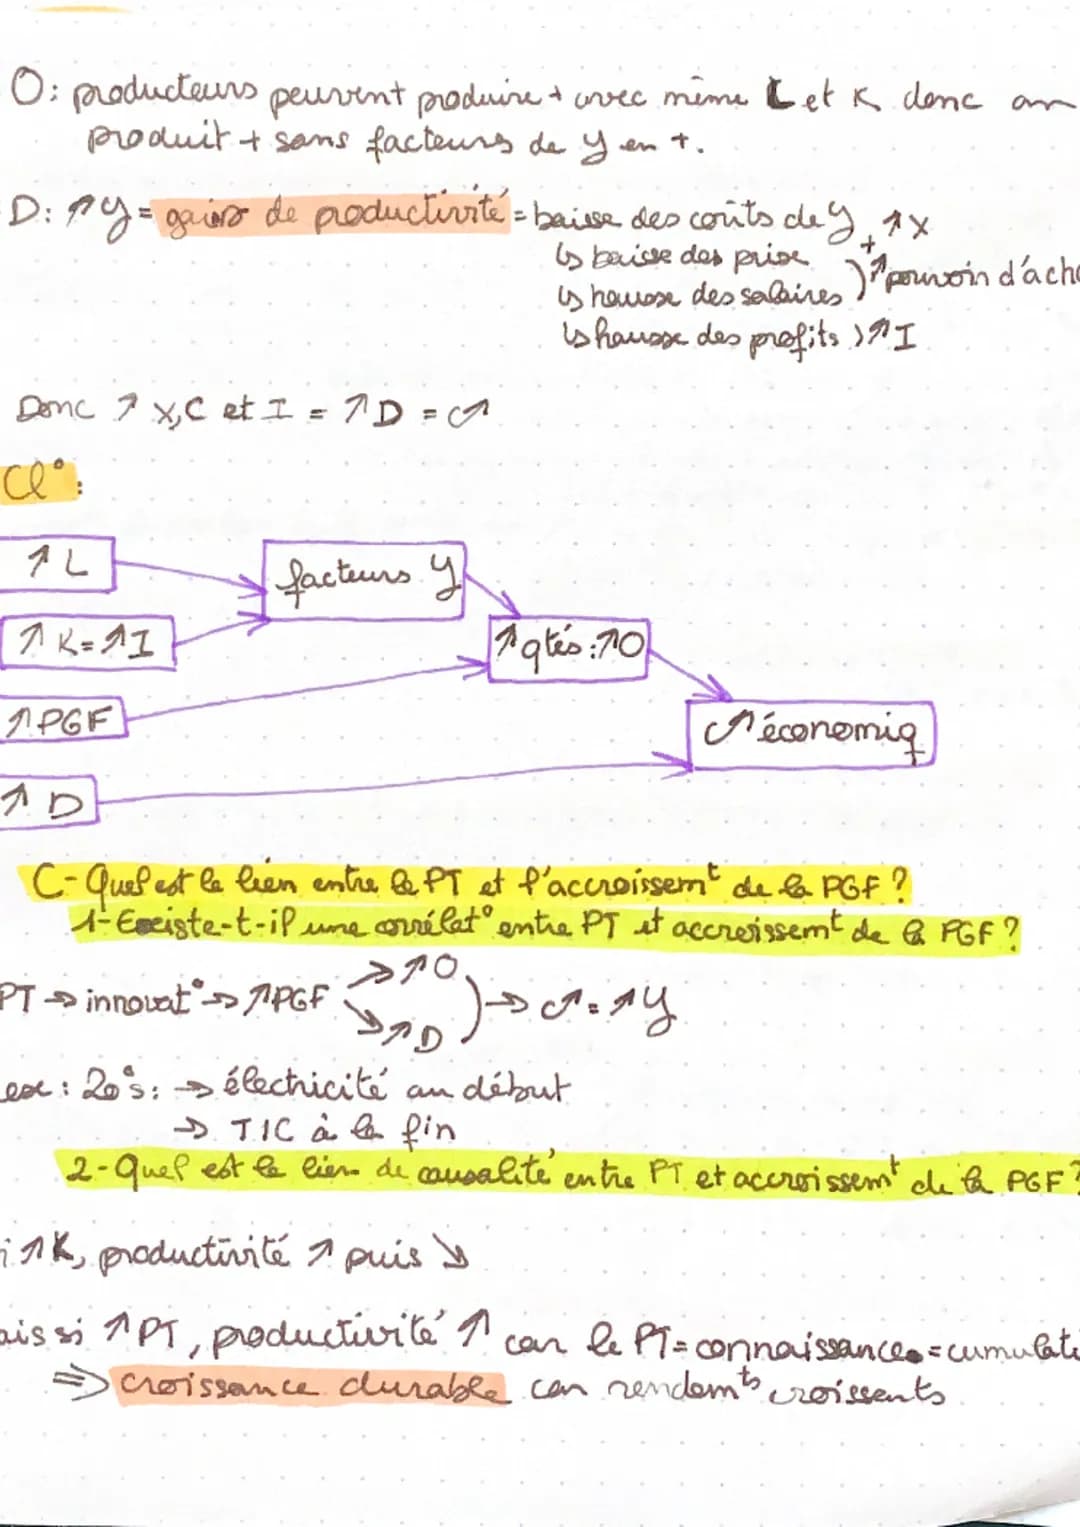 O: producteurs peuvent produire + avec même L et K donc on
produit + sans facteurs de Y en +.
D: ↗Y = gains de productivité = baisse des coûts de Y ↗X
↳ baisse des prix +
↳ hausse des salaires ) ↗ pouvoir d'acha
↳ hausse des profits ) ↗ I
Donc ↗ X, C et I = ↗ D = C↗
Cl°:
↗ L
facteurs Y
↗ K = ↗ I
↗ qtés : ↗O
↗ PGF
C↗ économiq
↗ D
C- Quel est le lien entre le PT et l'accroissemt de la PGF ?
1- Existe-t-il une corrélat° entre PT et accroissemt de la PGF ?
PT → innovat° → ↗PGF → ↗O → ↗D ) → C↗ = ↗Y
ex : 20e s : → électricité au début
→ TIC à la fin
2- Quel est le lien de causalité entre PT et accroissemt de la PGF ?
i ↗K, productivité ↗ puis ↘
ais si ↗PT, productivité ↗ car le PT = connaissances = cumulati
⇒ croissance durable car rendemts croissants